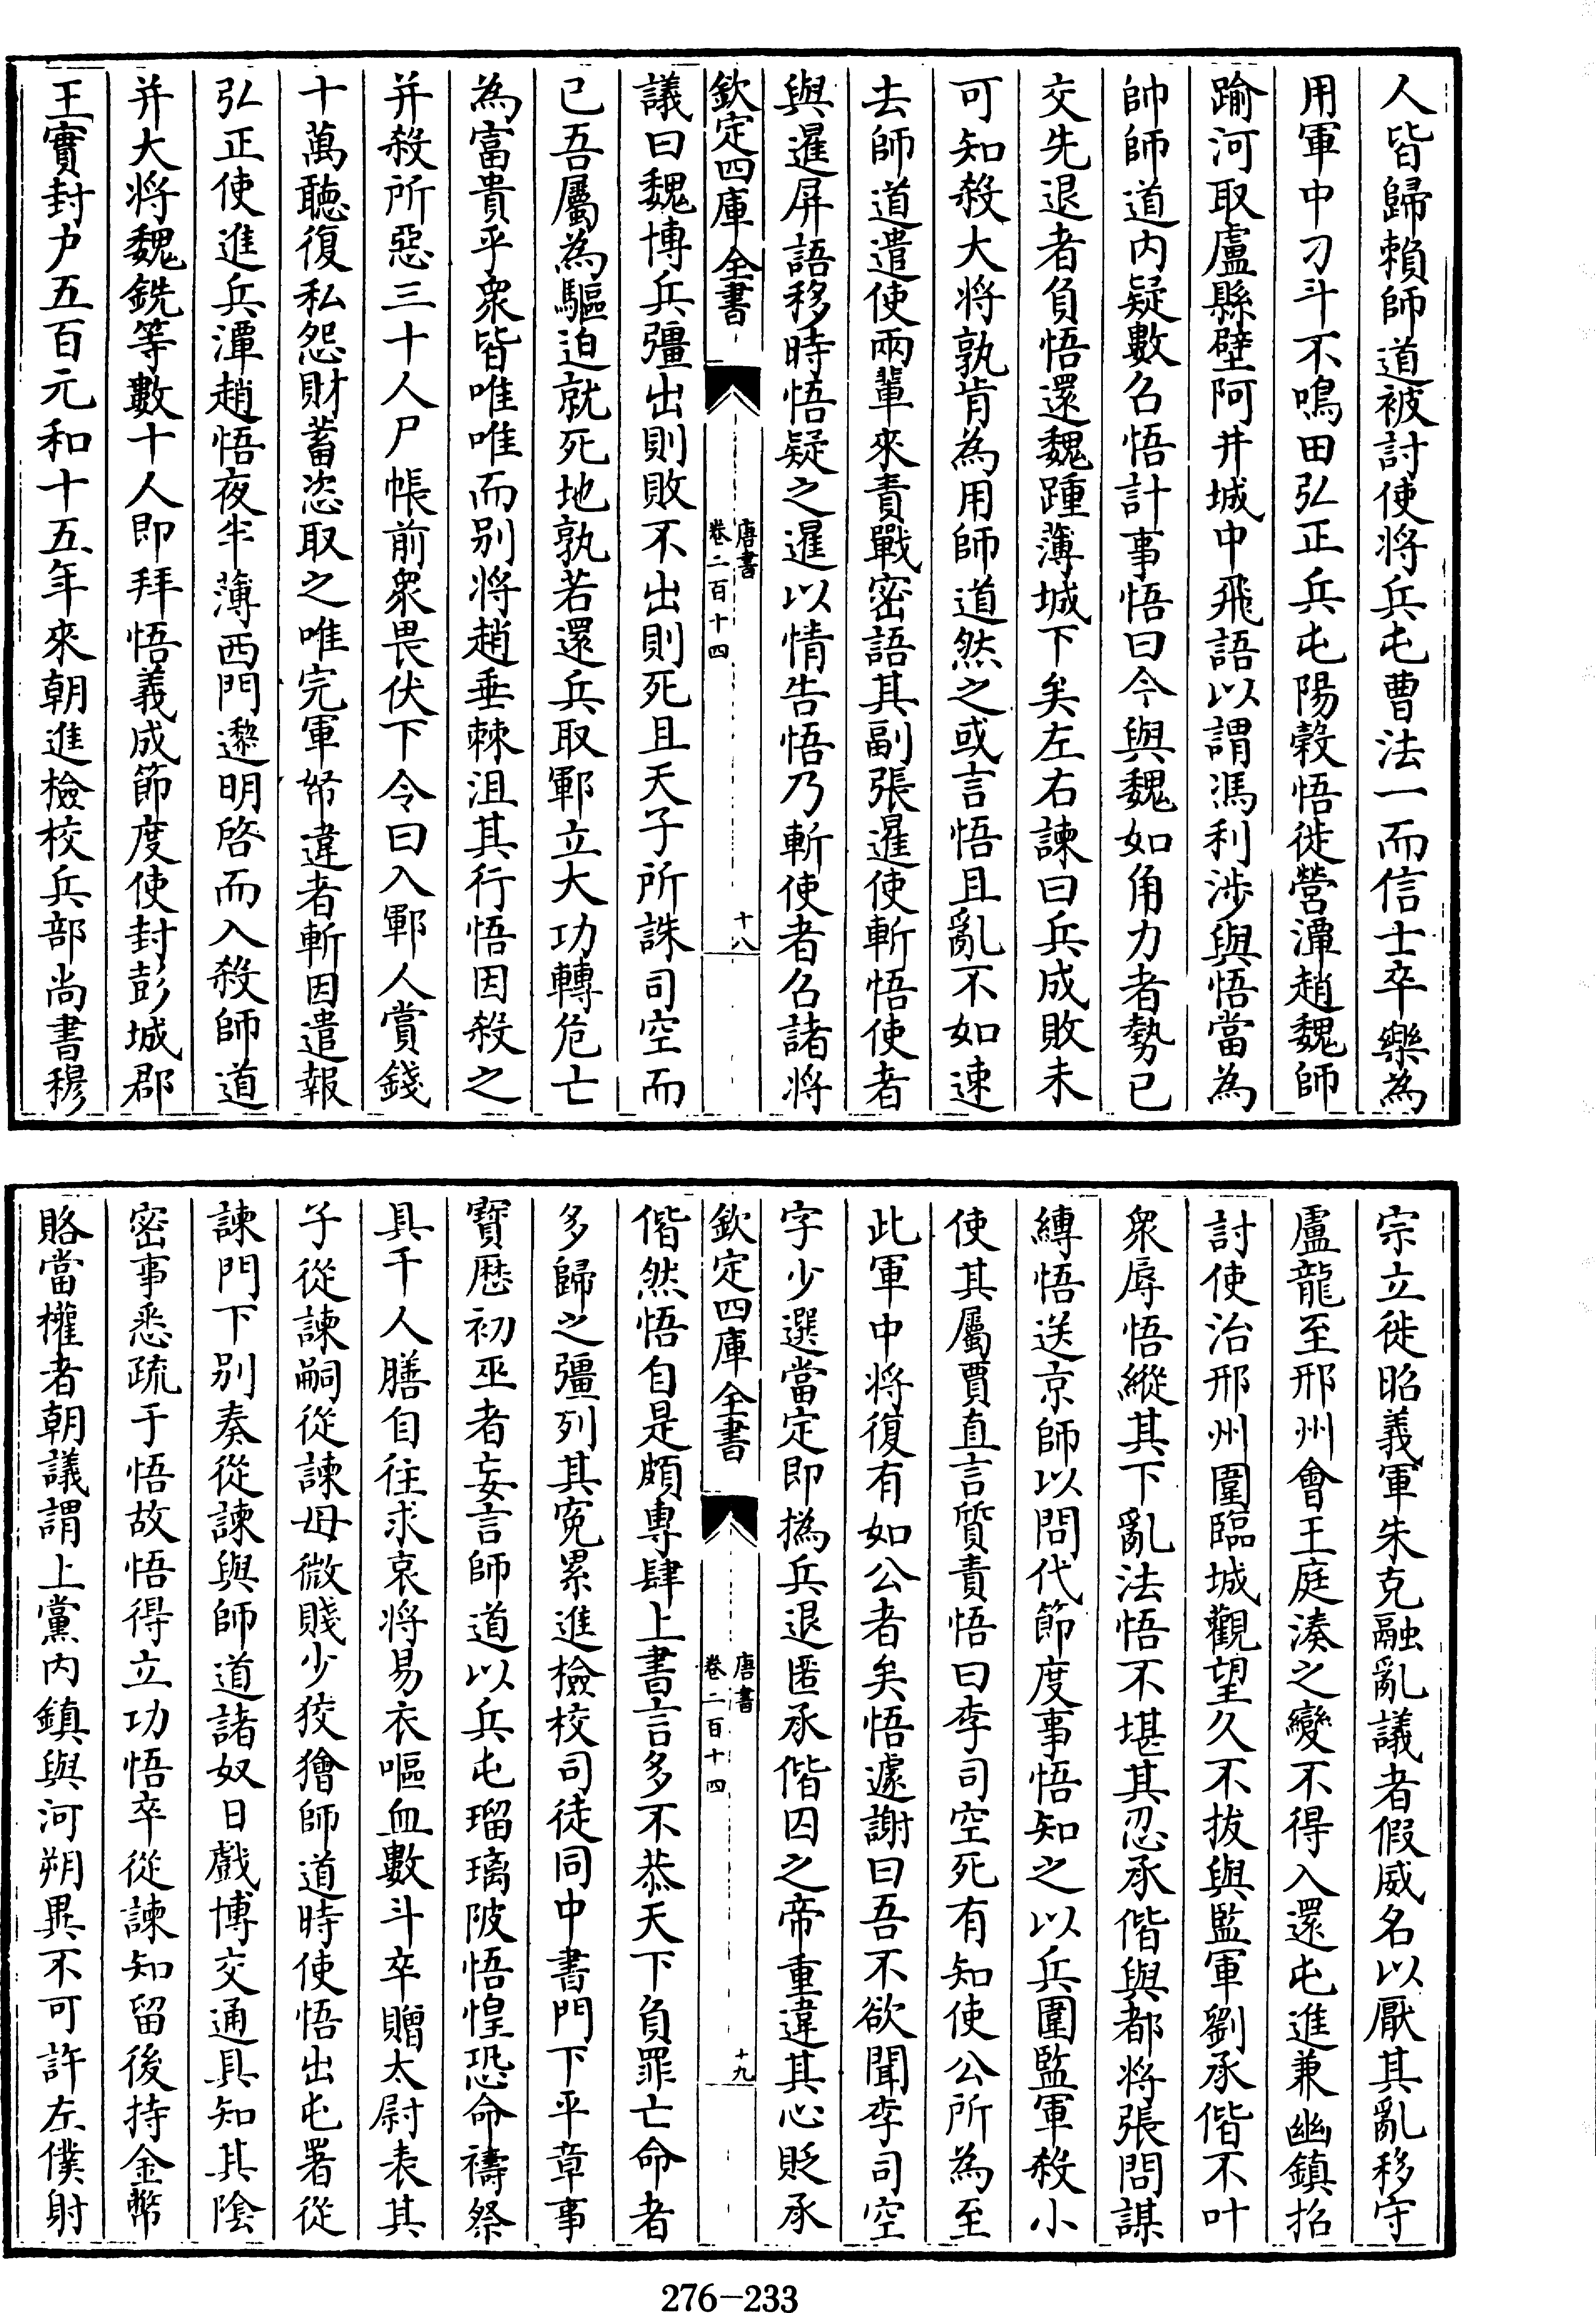 人皆歸賴師道被討使将兵屯曹法一而信士卒樂為
用軍中刁斗不鳴田弘正兵屯陽穀悟徙營潭趙魏師
踰河取盧縣壁阿井城中飛語以謂馮利涉與悟當為
帥師道内疑數召悟計事悟曰今與魏如角力者勢已
交先退者負悟還魏踵薄城下矣左右諫曰兵成敗未
可知殺大将孰肯為用師道然之或言悟且亂不如速
去師道遣使兩輩來責戰密語其副張暹使斬悟使者
與暹屏語移時悟疑之暹以情告悟乃斬使者召諸将
欽定四庫全書
唐書
卷二百十四
十八
議曰魏博兵彊出則敗不出則死且天子所誅司空而
已吾屬為驅迫就死地孰若還兵取鄆立大功轉危亡
為富貴乎衆皆唯唯而别将趙垂棘沮其行悟因殺之
并殺所惡三十人尸帳前衆畏伏下令曰入鄆人賞錢
十萬聽復私怨財蓄恣取之唯完軍帑違者斬因遣報
弘正使進兵潭趙悟夜半薄西門邌明啓而入殺師道
并大将魏銑等數十人即拜悟義成節度使封彭城郡
王實封户五百元和十五年來朝進檢校兵部尚書穆
宗立徙昭義軍朱克融亂議者假威名以厭其亂移守
盧龍至邢州會王庭湊之變不得入還屯進兼幽鎮招
討使治邢州圍臨城觀望久不拔與監軍劉承偕不叶
衆辱悟縱其下亂法悟不堪其忍承偕與都将張問謀
縛悟送京師以問代節度事悟知之以兵圍監軍殺小
使其屬賈直言質責悟曰李司空死有知使公所為至
此軍中将復有如公者矣悟遽謝曰吾不欲聞李司空
字少選當定即撝兵退匿承偕囚之帝重違其心貶承
欽定四庫全書
唐書
卷二百十四
十九
偕然悟自是頗專肆上書言多不恭天下負罪亡命者
多歸之彊列其寃累進檢校司徒同中書門下平章事
寶厯初巫者妄言師道以兵屯瑠璃陂悟惶恐命禱祭
具千人膳自往求哀将易衣嘔血數斗卒贈太尉表其
子從諫嗣從諫母微賤少狡獪師道時使悟出屯署從
諫門下别奏從諫與師道諸奴日戲博交通具知其隂
密事悉疏于悟故悟得立功悟卒從諫知留後持金幣
賂當權者朝議謂上黨内鎮與河朔異不可許左僕射
276-233